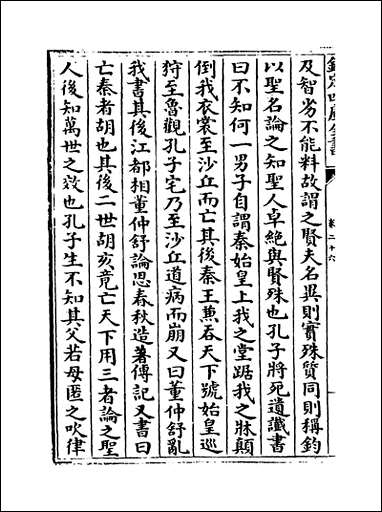 欽定四庫全書
卷二十六
及智劣不能料故謂之賢夫名異則實殊質同則稱鈞
以聖名論之知聖人卓絶與賢殊也孔子將死遺讖書
曰不知何一男子自謂秦始皇上我之堂踞我之牀顛
倒我衣裳至沙丘而亡其後秦王兼吞天下號始皇巡
狩至魯觀孔子宅乃至沙丘道病而崩又曰董仲舒亂
我書其後江都相董仲舒論思春秋造著傳記又書曰
亡秦者胡也其後二世胡亥竟亡天下用三者論之聖
人後知萬世之效也孔子生不知其父若母匿之吹律